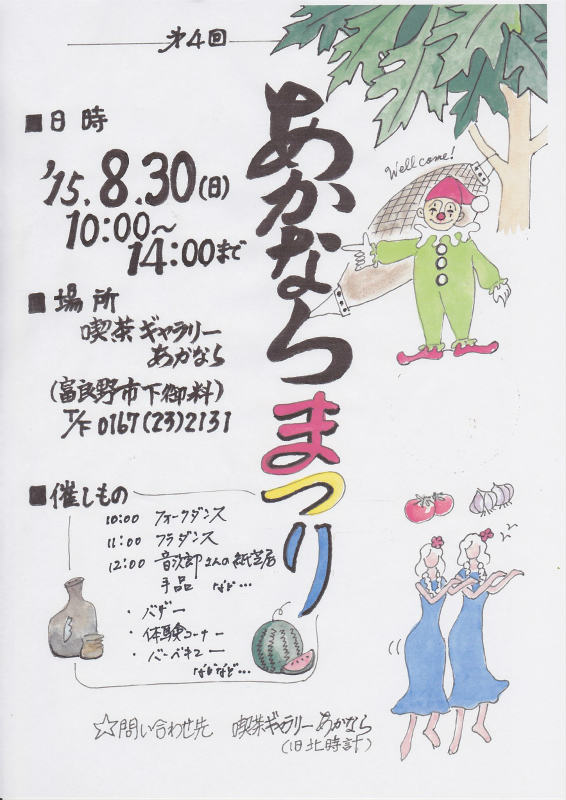 第4回
あかならまつり
Wellcome!
■日時
'15.8.30(日)
10:00〜
14:00まで
■場所
喫茶ギャラリー
あかなら
(富良野市下御料)
T/F 0167(23)2131
■催しもの
10:00 フォークダンス
11:00 フラダンス
12:00 音次郎さんの紙芝居
手品 など…
・バザー
・体験コーナー
・バーベキュー
などなど…
☆問い合わせ先 喫茶ギャラリーあかなら
(旧北時計)